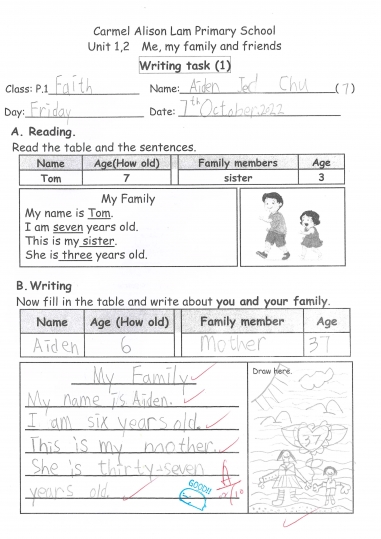 Carmel Alison Lam Primary School
Unit 1,2 Me, my family and friends
Writing task (1)
Class: P.1 Faith Name: Aiden Jed Chu (7)
Day: Friday Date: 7th October 2022
A. Reading.
Read the table and the sentences.
Name Age(How old) Family members Age
Tom 7 sister 3
My Family
My name is Tom.
I am seven years old.
This is my sister.
She is three years old.
B. Writing
Now fill in the table and write about you and your family.
Name Age (How old) Family member Age
Aiden 6 Mother 37
My Family
Draw here.
My name is Aiden.
I am six years old.
This is my mother.
She is thirty-seven
years old.
37
GOOD!!
A